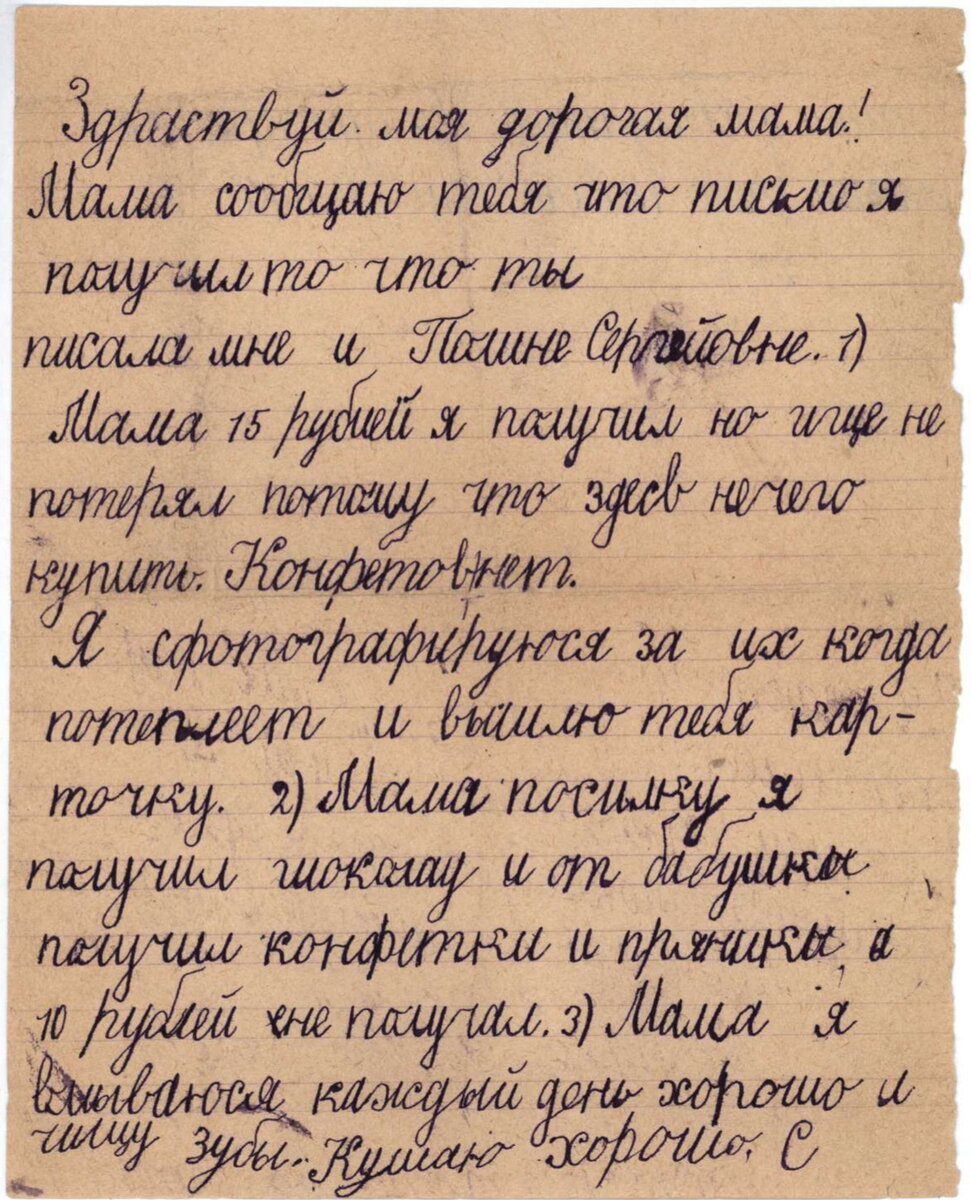 Здраствуй моя дорогая мама!
Мама сообщаю тебя что письмо я
получил то что ты
писала мне и Полине Сергейовне. 1)
Мама 15 рублей я получил но ище не
потерял потому что здесв нечего
купить. Конфетов нет.
Я сфотографируюся за их когда
потеплеет и вышлю тебя кар-
точку. 2) Мама посилку я
получил шоколад и от бабушки
получил конфетки и пряники, а
10 рублей не получал. 3) Мама я
вмываюся каждый день хорошо и
чищу зубы. Кушаю хорошо. С